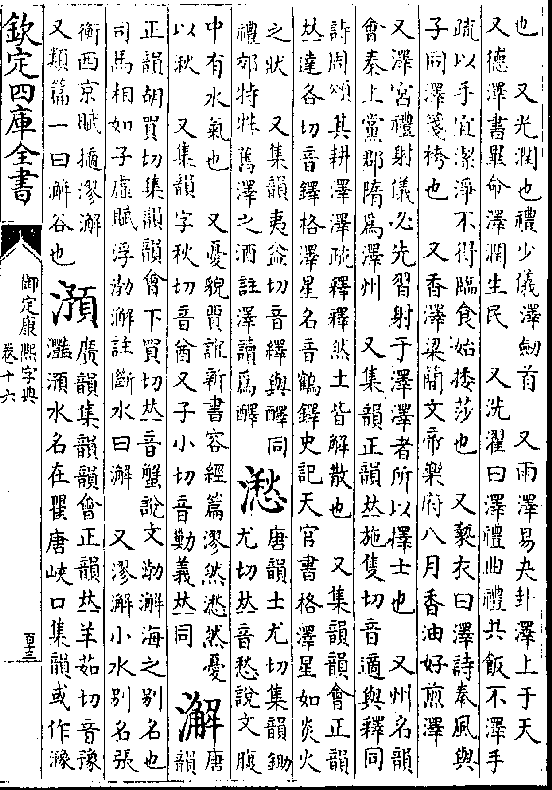 也　又光潤也禮少儀澤劒首　又雨澤易夬卦澤上于天
又德澤書畢命澤潤生民　又洗濯曰澤禮曲禮共飯不澤手
疏以手宜潔淨不得臨食始捼莎也　又褻衣曰澤詩秦風與
子同澤箋袴也　又香澤梁簡文帝樂府八月香油好煎澤
又澤宮禮射儀必先習射于澤澤者所以擇士也　又州名韻
會秦上黨郡隋爲澤州　又集韻正韻𠀤施隻切音適與釋同
詩周頌其耕澤澤疏釋釋然土皆解散也　又集韻韻會正韻
𠀤達各切音鐸格澤星名音鶴鐸史記天官書格澤星如炎火
之狀　又集韻夷益切音繹與醳同
禮郊特牲舊澤之酒註澤讀爲醳
㵞
唐韻士尤切集韻鋤
尤切𠀤音愁說文腹
中有水氣也　又憂貌賈誼新書容經篇漻然㵞然憂
以秋　又集韻字秋切音酋又子小切音勦義𠀤同
澥
唐
韻
正韻胡買切集韻韻會下買切𠀤音蟹說文渤澥海之别名也
司馬相如子虛賦浮渤澥註斷水曰澥　又漻澥小水别名張
衡西京賦擿漻澥
又類篇一曰澥谷也
澦
廣韻集韻韻會正韻𠀤羊茹切音豫
灩澦水名在瞿唐峽口集韻或作㵧
欽定四庫全書
御定康熙字典
卷十六